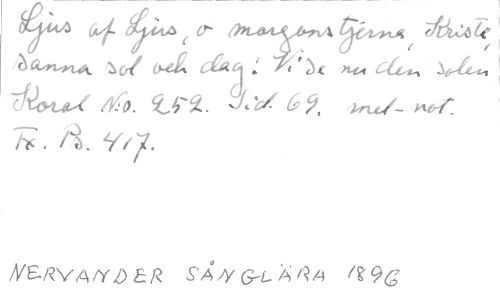 Ljus af Ljus, o morgonstjerna, Kriste,
sanna sol och dag! Vi se nu den solen
Koral No. 252. Sid. 69. mel-not.
Fx. Ps. 417.
NERVANDER SÅNGLÄRA 1896